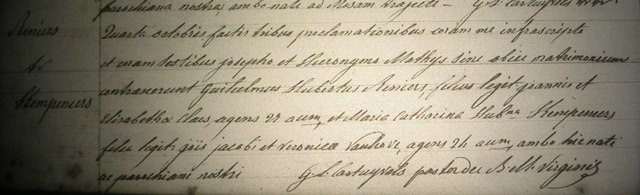 parochiana nostra, ambo nate ad Mosam trajecti
Reniers
&
Kempeneers
Quarta octobris factis tribus proclamationibus coram me infrascripto
et coram testibus josepho et Hieronymo Mathys sine alice matrimonium
contraxerunt Guilhelmus Hubertus Reniers, filius legit. joannis et
Elisabetha Claes agens 27 aum, et Maria Catharina Hubna Kempeneers
filia legit: gris jacobi et veronica vanhove, agens 24 aum, ambo hic nati
ac parochiani nostri G L Cartuyvels pastor des B. M. Virginis